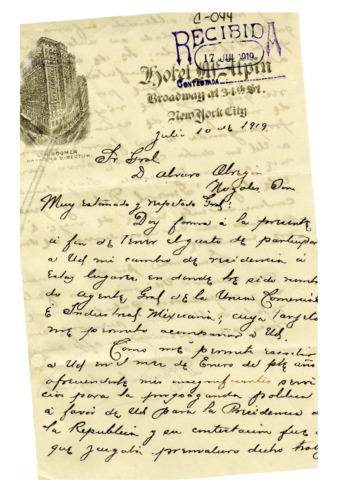 C-044
RECIBIDA
17 JUL 1919
CONTESTADA
Hotel McAlpin
Broadway at 34th St.
New York City
BOOMER
MANAGING DIRECTOR
Julio 10 de 1919
Sr Gral
D. Alvaro Obregon
Nogales Son
Muy estimado y respetado Gral:
Doy forma á la presente
á fin de tener el gusto de participar
a Ud mi cambo de residencia á
estos lugares en donde he sido nombra
do agente Gral de la Union Comercial
é Industrial Mexicana; cuya
me permito acompañar a Ud.
Como me permití escribir
a Ud en el mes de Enero del pte año
ofreciendole mis insignificantes servi
cios para la propaganda politica
á favor de Ud para la Presidencia de
la Republica y su contestacion fue
que juzgaba prematuro dicho trab